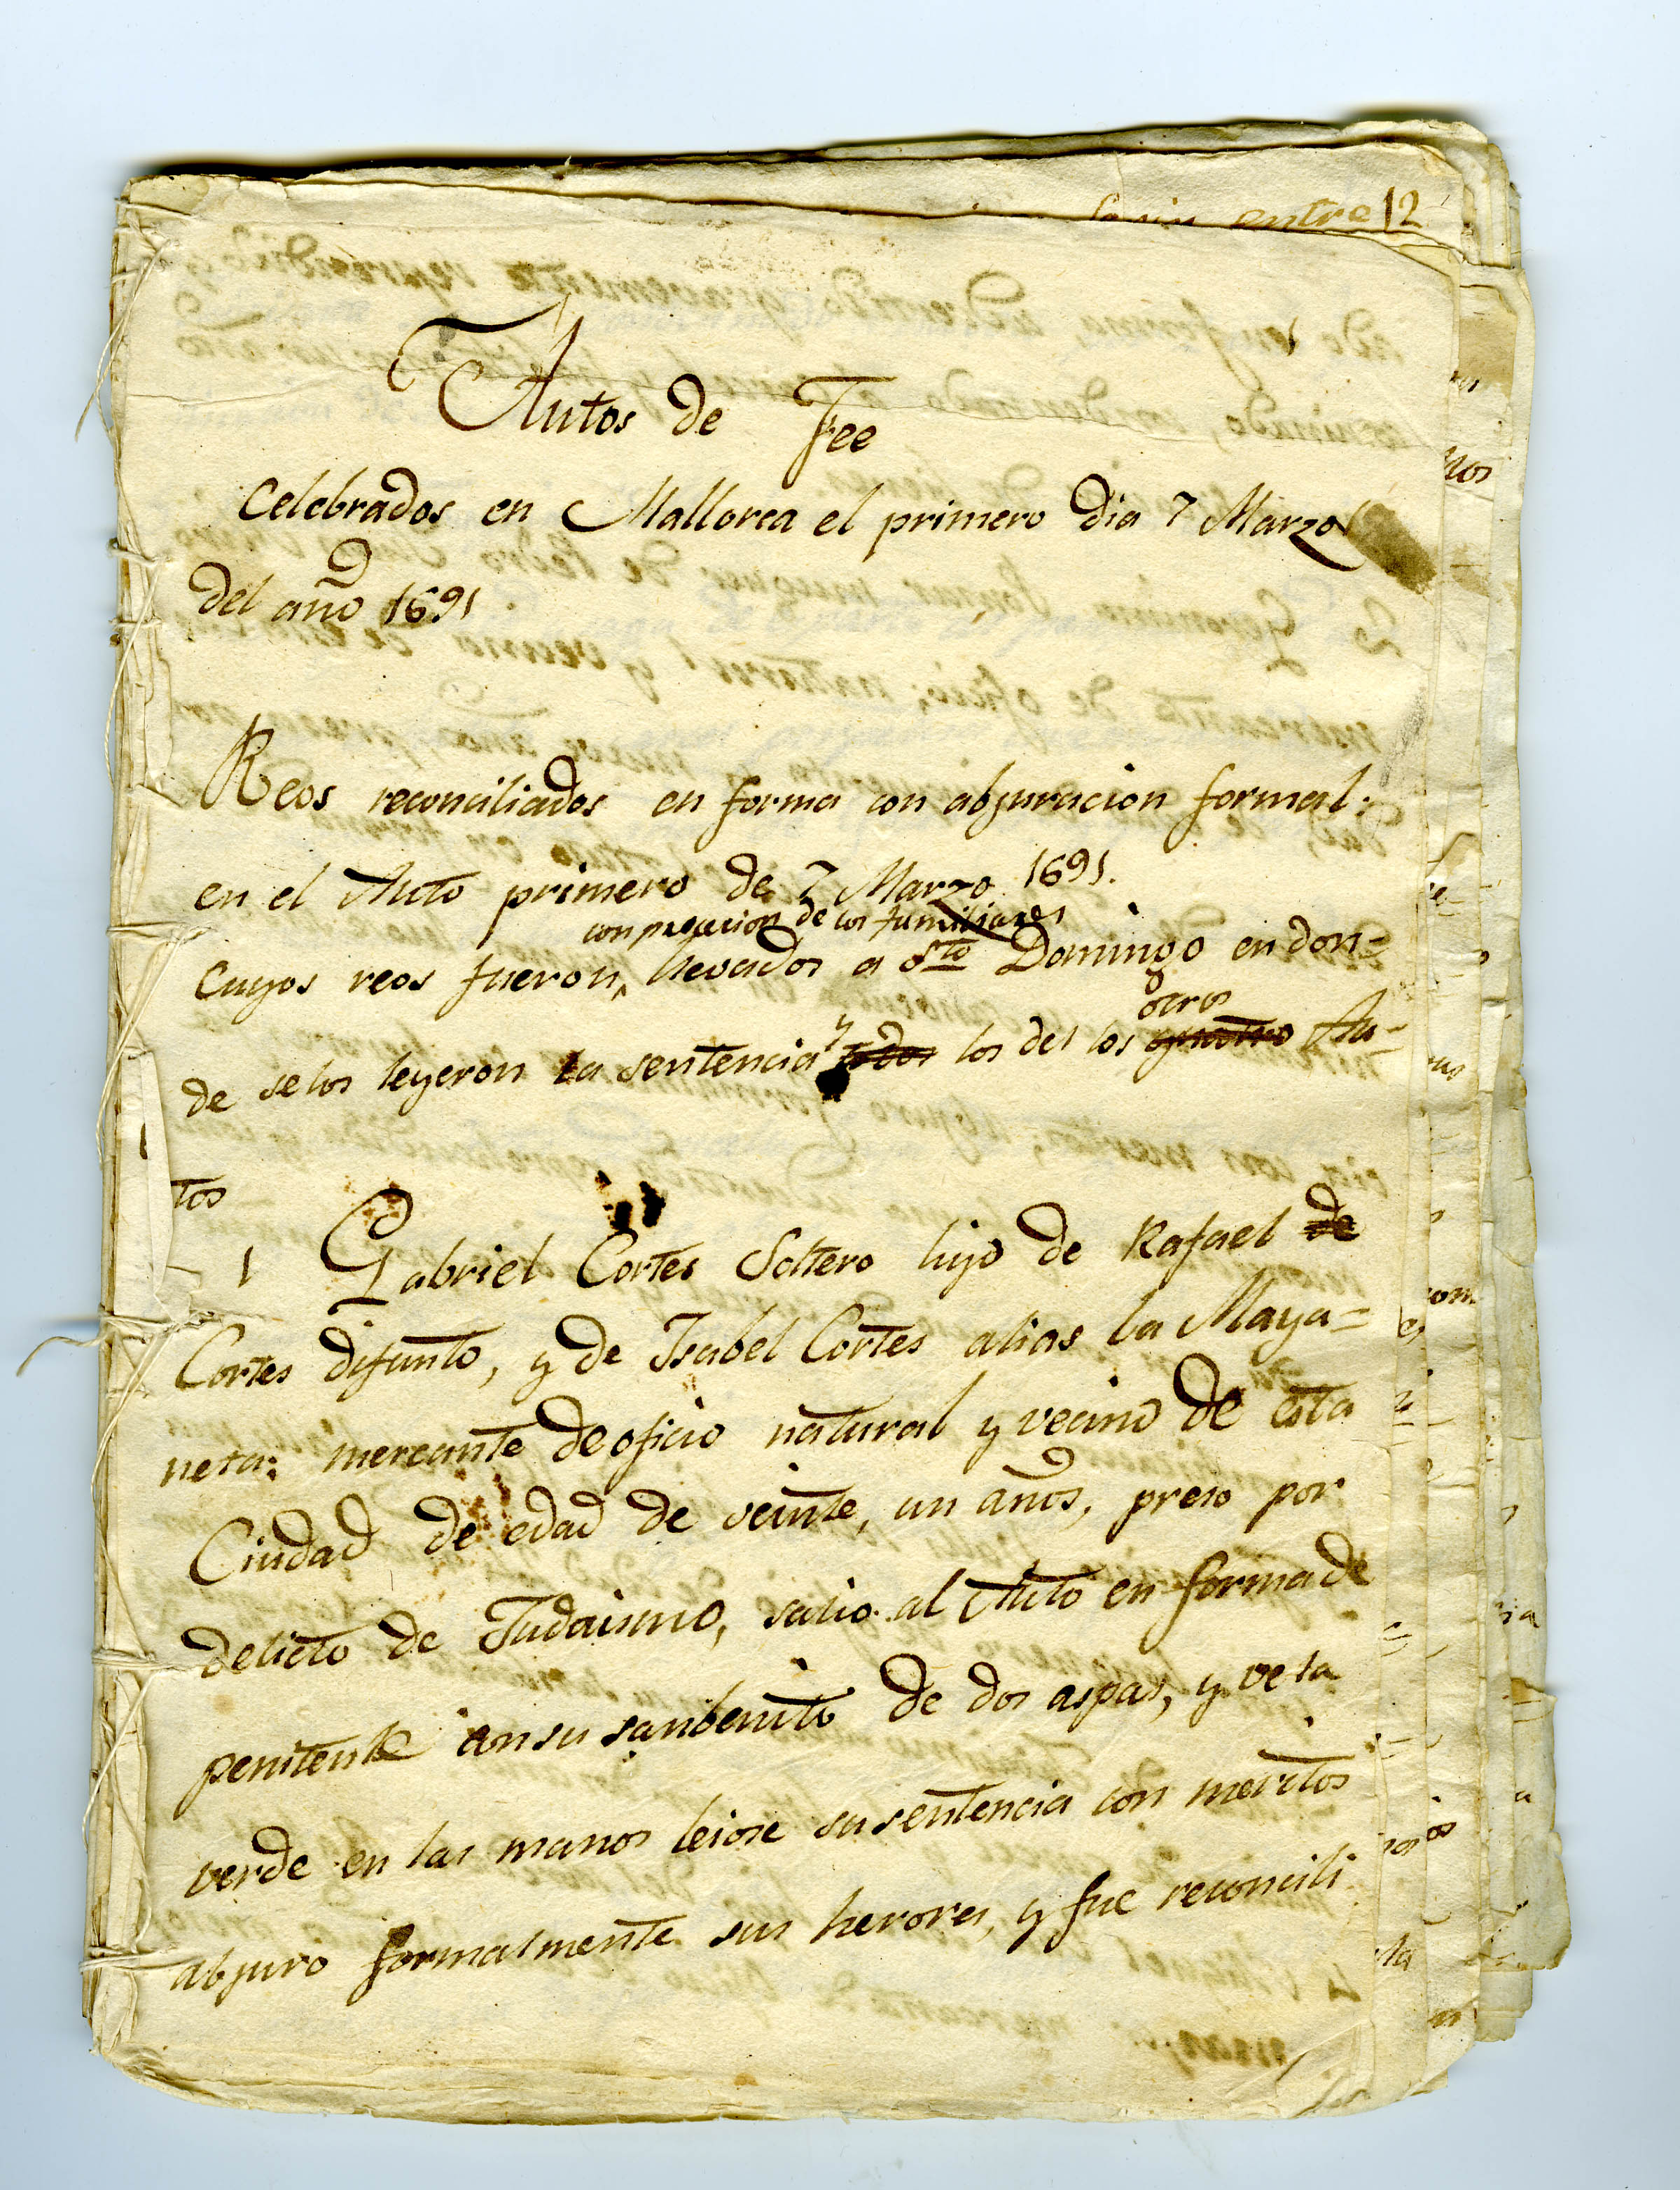 entre 12
Autos de Fee
Celebrados en Mallorca el primero dia 7 Marzo
del año 1691
Reos reconciliados en forma con abjuracion formal.
en el Auto primero de 7 Marzo 1691.
con procecion de los familiares
Cuyos reos fueron llevados a Sto Domingo en don=
otros
de selos leyeron la sentencia y todos los del los quatro Au=
tos
1 Gabriel Cortes Soltero hijo de Rafael de
Cortes difunto, y de Isabel Cortes alias la Moya=
neta: mercante de oficio natural y vecino de esta
Ciudad de edad de veinte, un años, preso por
delicto de Judaismo, salio al Auto en forma de
penitente con su sanbenito de dos aspas, y vela
verde en las manos leiose su sentencia con meritos
abjuro formalmente sus herores, y fue reconcili